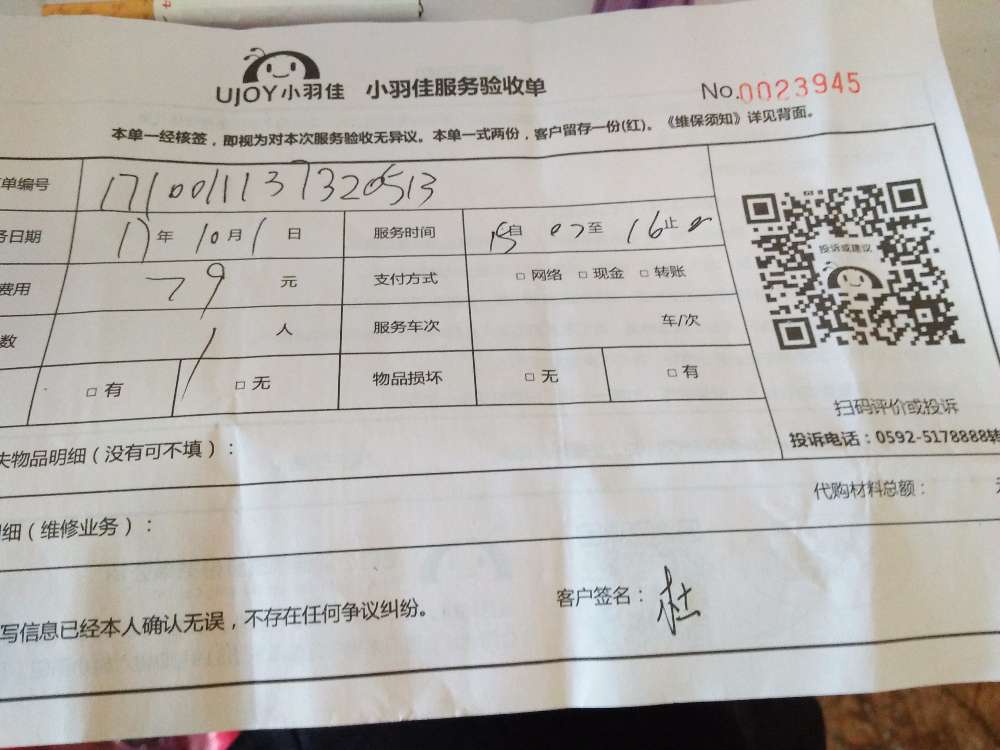 UJOY小羽佳 小羽佳服务验收单 No.0023945
本单一经核签，即视为对本次服务验收无异议。本单一式两份，客户留存一份(红)。《维保须知》详见背面。
单编号 1710011137320513
务日期 17年 10月1日 服务时间 15自 07至 16止
费用 79 元 支付方式 □ 网络 □ 现金 □ 转账
数 1 人 服务车次 车/次
□ 有 □ 无 物品损坏 □ 无 □ 有
投诉或建议
扫码评价或投诉
投诉电话：0592-5178888转
失物品明细（没有可不填）：
代购材料总额：
细（维修业务）：
写信息已经本人确认无误，不存在任何争议纠纷。 客户签名：杜